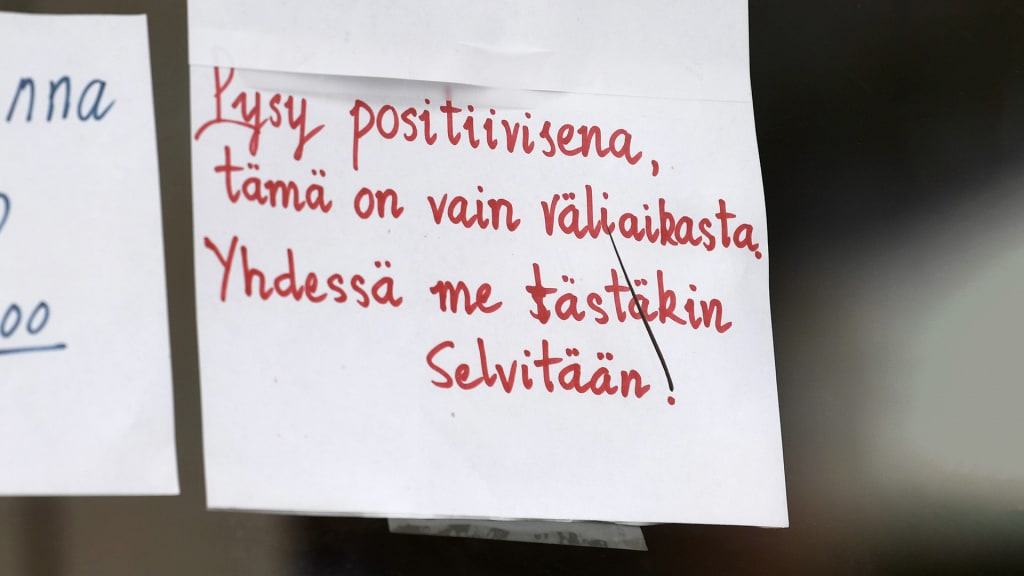 nna
oo
Pysy positiivisena,
tämä on vain väliaikasta.
Yhdessä me tästäkin
Selvitään!